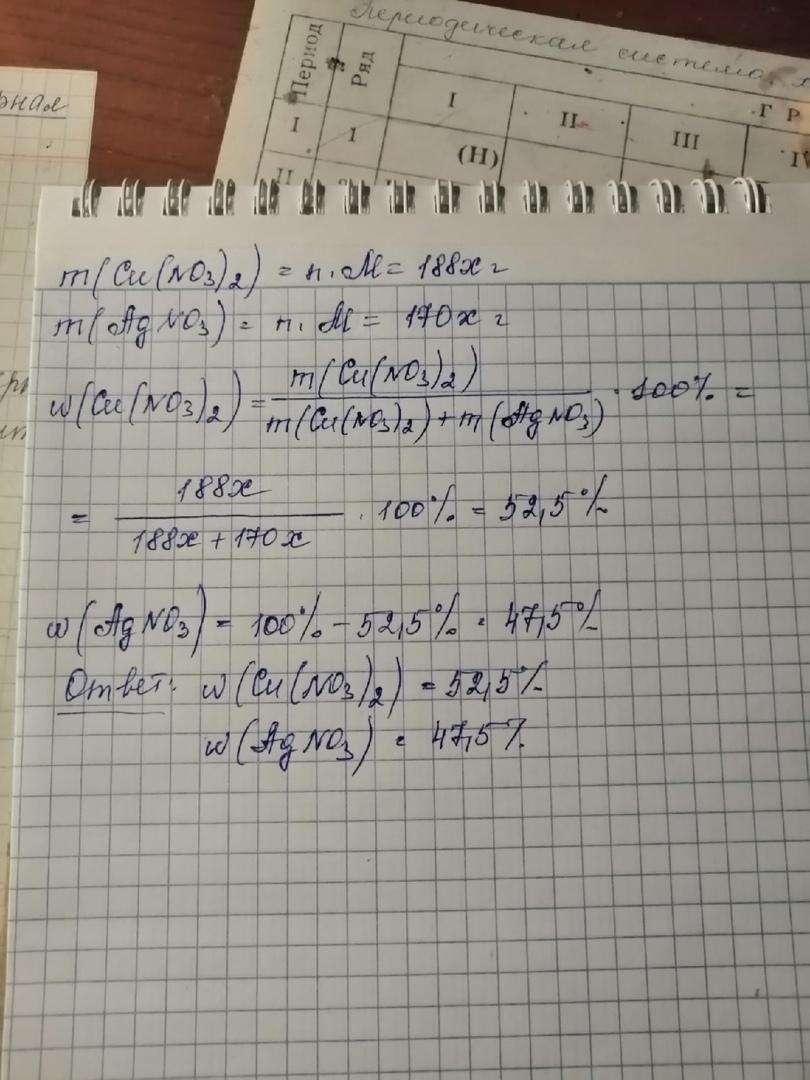 Периодическая система
Период
Ряд
I
II
III
Г Р
I
1
(H)
II
m(Cu(NO₃)₂) = n·M = 188x г
m(AgNO₃) = n·M = 170x г
w(Cu(NO₃)₂) = m(Cu(NO₃)₂) / m(Cu(NO₃)₂) + m(AgNO₃) · 100% =
= 188x / 188x + 170x · 100% = 52,5%
w(AgNO₃) = 100% – 52,5% = 47,5%
Ответ: w(Cu(NO₃)₂) = 52,5%
w(AgNO₃) = 47,5%